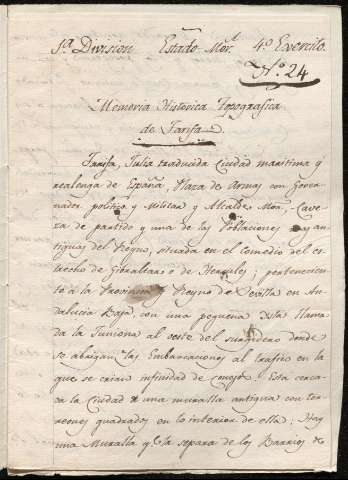 1ª Division Estado Mor.t 4º Exercito
Nº 24
Memoria Historica Topografica
de Tarifa
Tarifa, Julia traducida Ciudad maritima y
realenga de España, Plaza de Armas con Gover
nador politico y Militar y Alcalde Mor. Cave
za de partido y una de las Poblaciones mas an
tiguas del Reyno, situada en el comedio del es
trecho de Gibraltar o de Hercules; perteneciente
à la Provincia y Reyno de Sevilla en An
dalucia Baja, con una pequeña Isla llama
da la Juniona al oeste del surgidero donde
se abrigan las Embarcaciones al trafico en la
que se crian infinidad de conejos. Esta cerca
da la Ciudad de una muralla antigua con tor
reones quadrados en lo interior de ella; Hay
una Muralla q.e la separa de los Barrios de